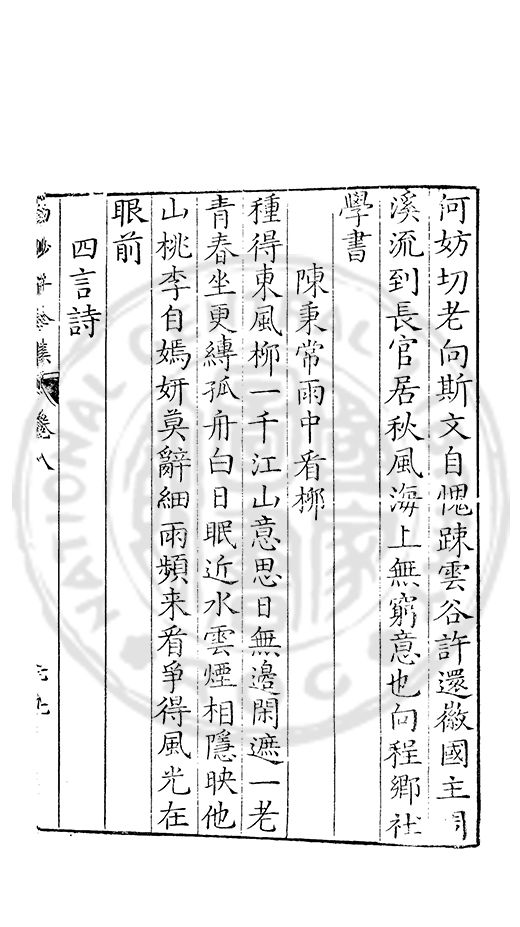 何妨切老向斯文自愧踈雲谷許還徽國主
溪流到長官居秋風海上無窮意也向程鄉社
學書
陳秉常雨中看栁
種得東風栁一千江山意思日無邊閑遮一老
青春坐更縛孤舟白日眠近水雲煙相隱映他
山桃李自嫣妍莫辭細雨頻来看爭得風光在
眼前
四言詩
卷八